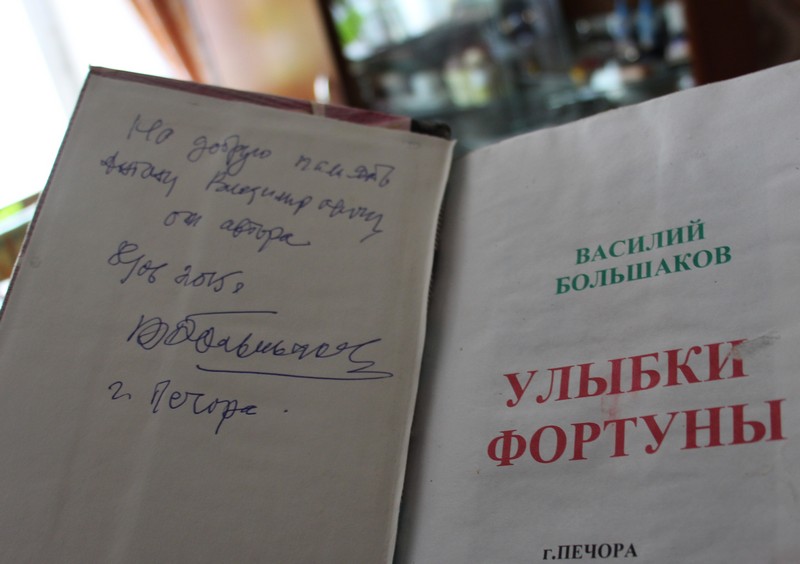 На добрую память
Антону Владимировичу
от автора
8/06 2015г
ВБольшаков
г. Печора.
ВАСИЛИЙ
БОЛЬШАКОВ
УЛЫБКИ
ФОРТУНЫ
г.ПЕЧОРА